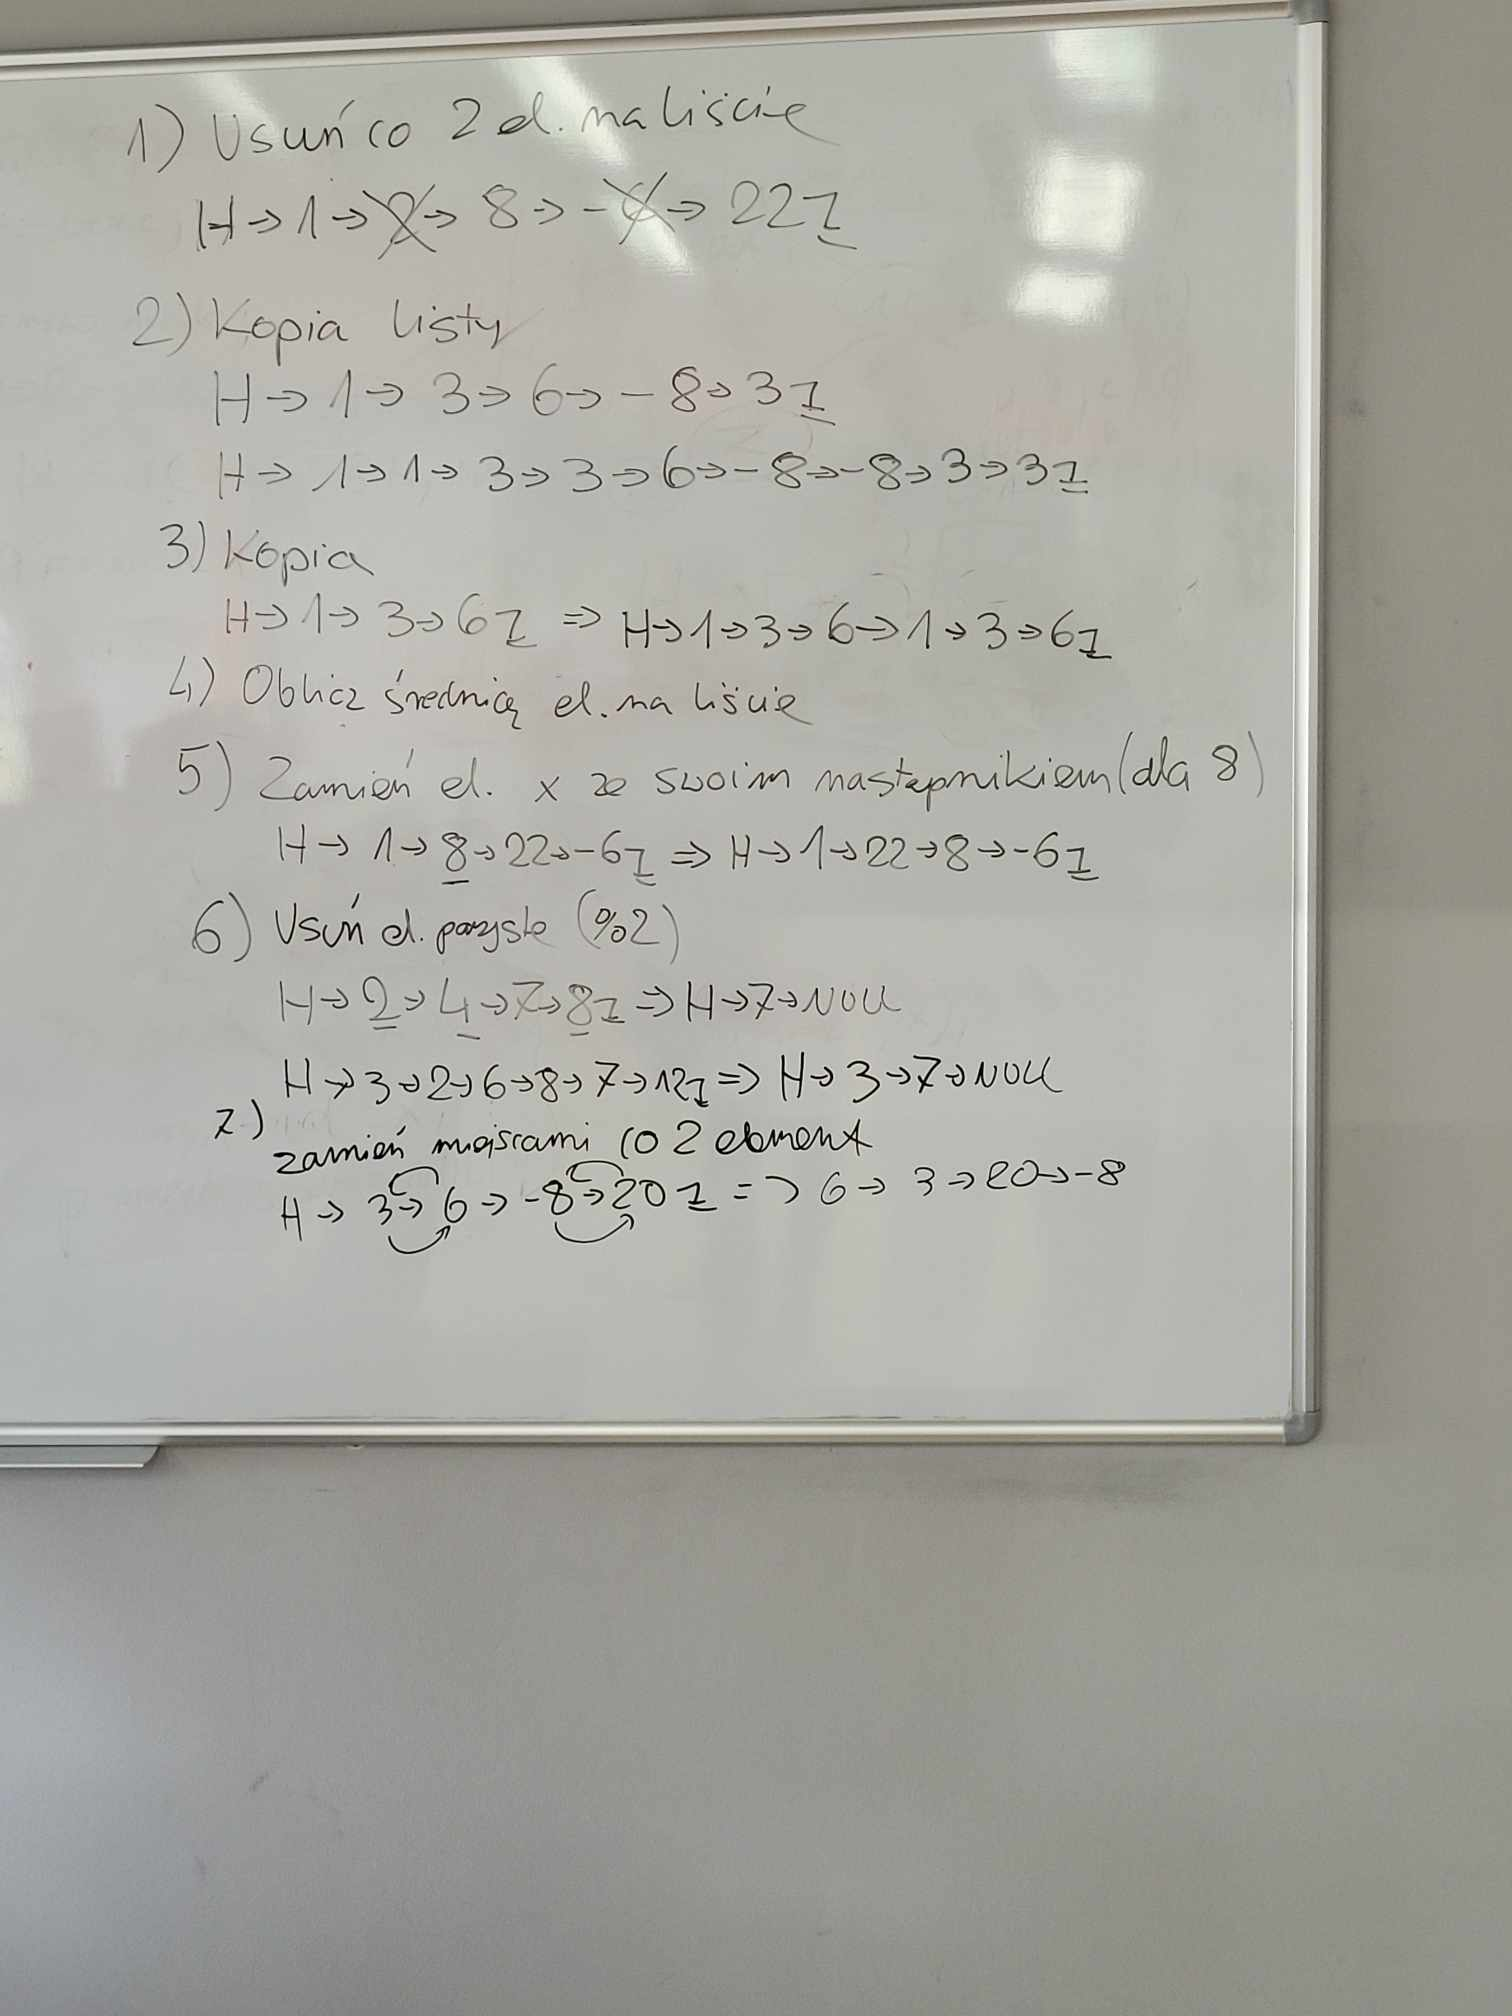 1) Usuń co 2 el. na liście
H → 1 → 2 → 8 → -4 → 22
2) Kopia listy
H → 1 → 3 → 6 → -8 → 3
H → 1 → 1 → 3 → 3 → 6 → -8 → -8 → 3 → 3
3) Kopia
H → 1 → 3 → 6 ⇒ H → 1 → 3 → 6 → 1 → 3 → 6
4) Oblicz średnicą el. na liście
5) Zamień el. x ze swoim następnikiem (dla 8)
H → 1 → 8 → 22 → -6 ⇒ H → 1 → 22 → 8 → -6
6) Usuń el. parzyste (%2)
H → 2 → 4 → 7 → 8 ⇒ H → 7 → NULL
H → 3 → 2 → 6 → 8 → 7 → 12 ⇒ H → 3 → 7 → NULL
7)
zamień miejscami co 2 element
H → 3 → 6 → -8 → 20 ⇒ 6 → 3 → 20 → -8